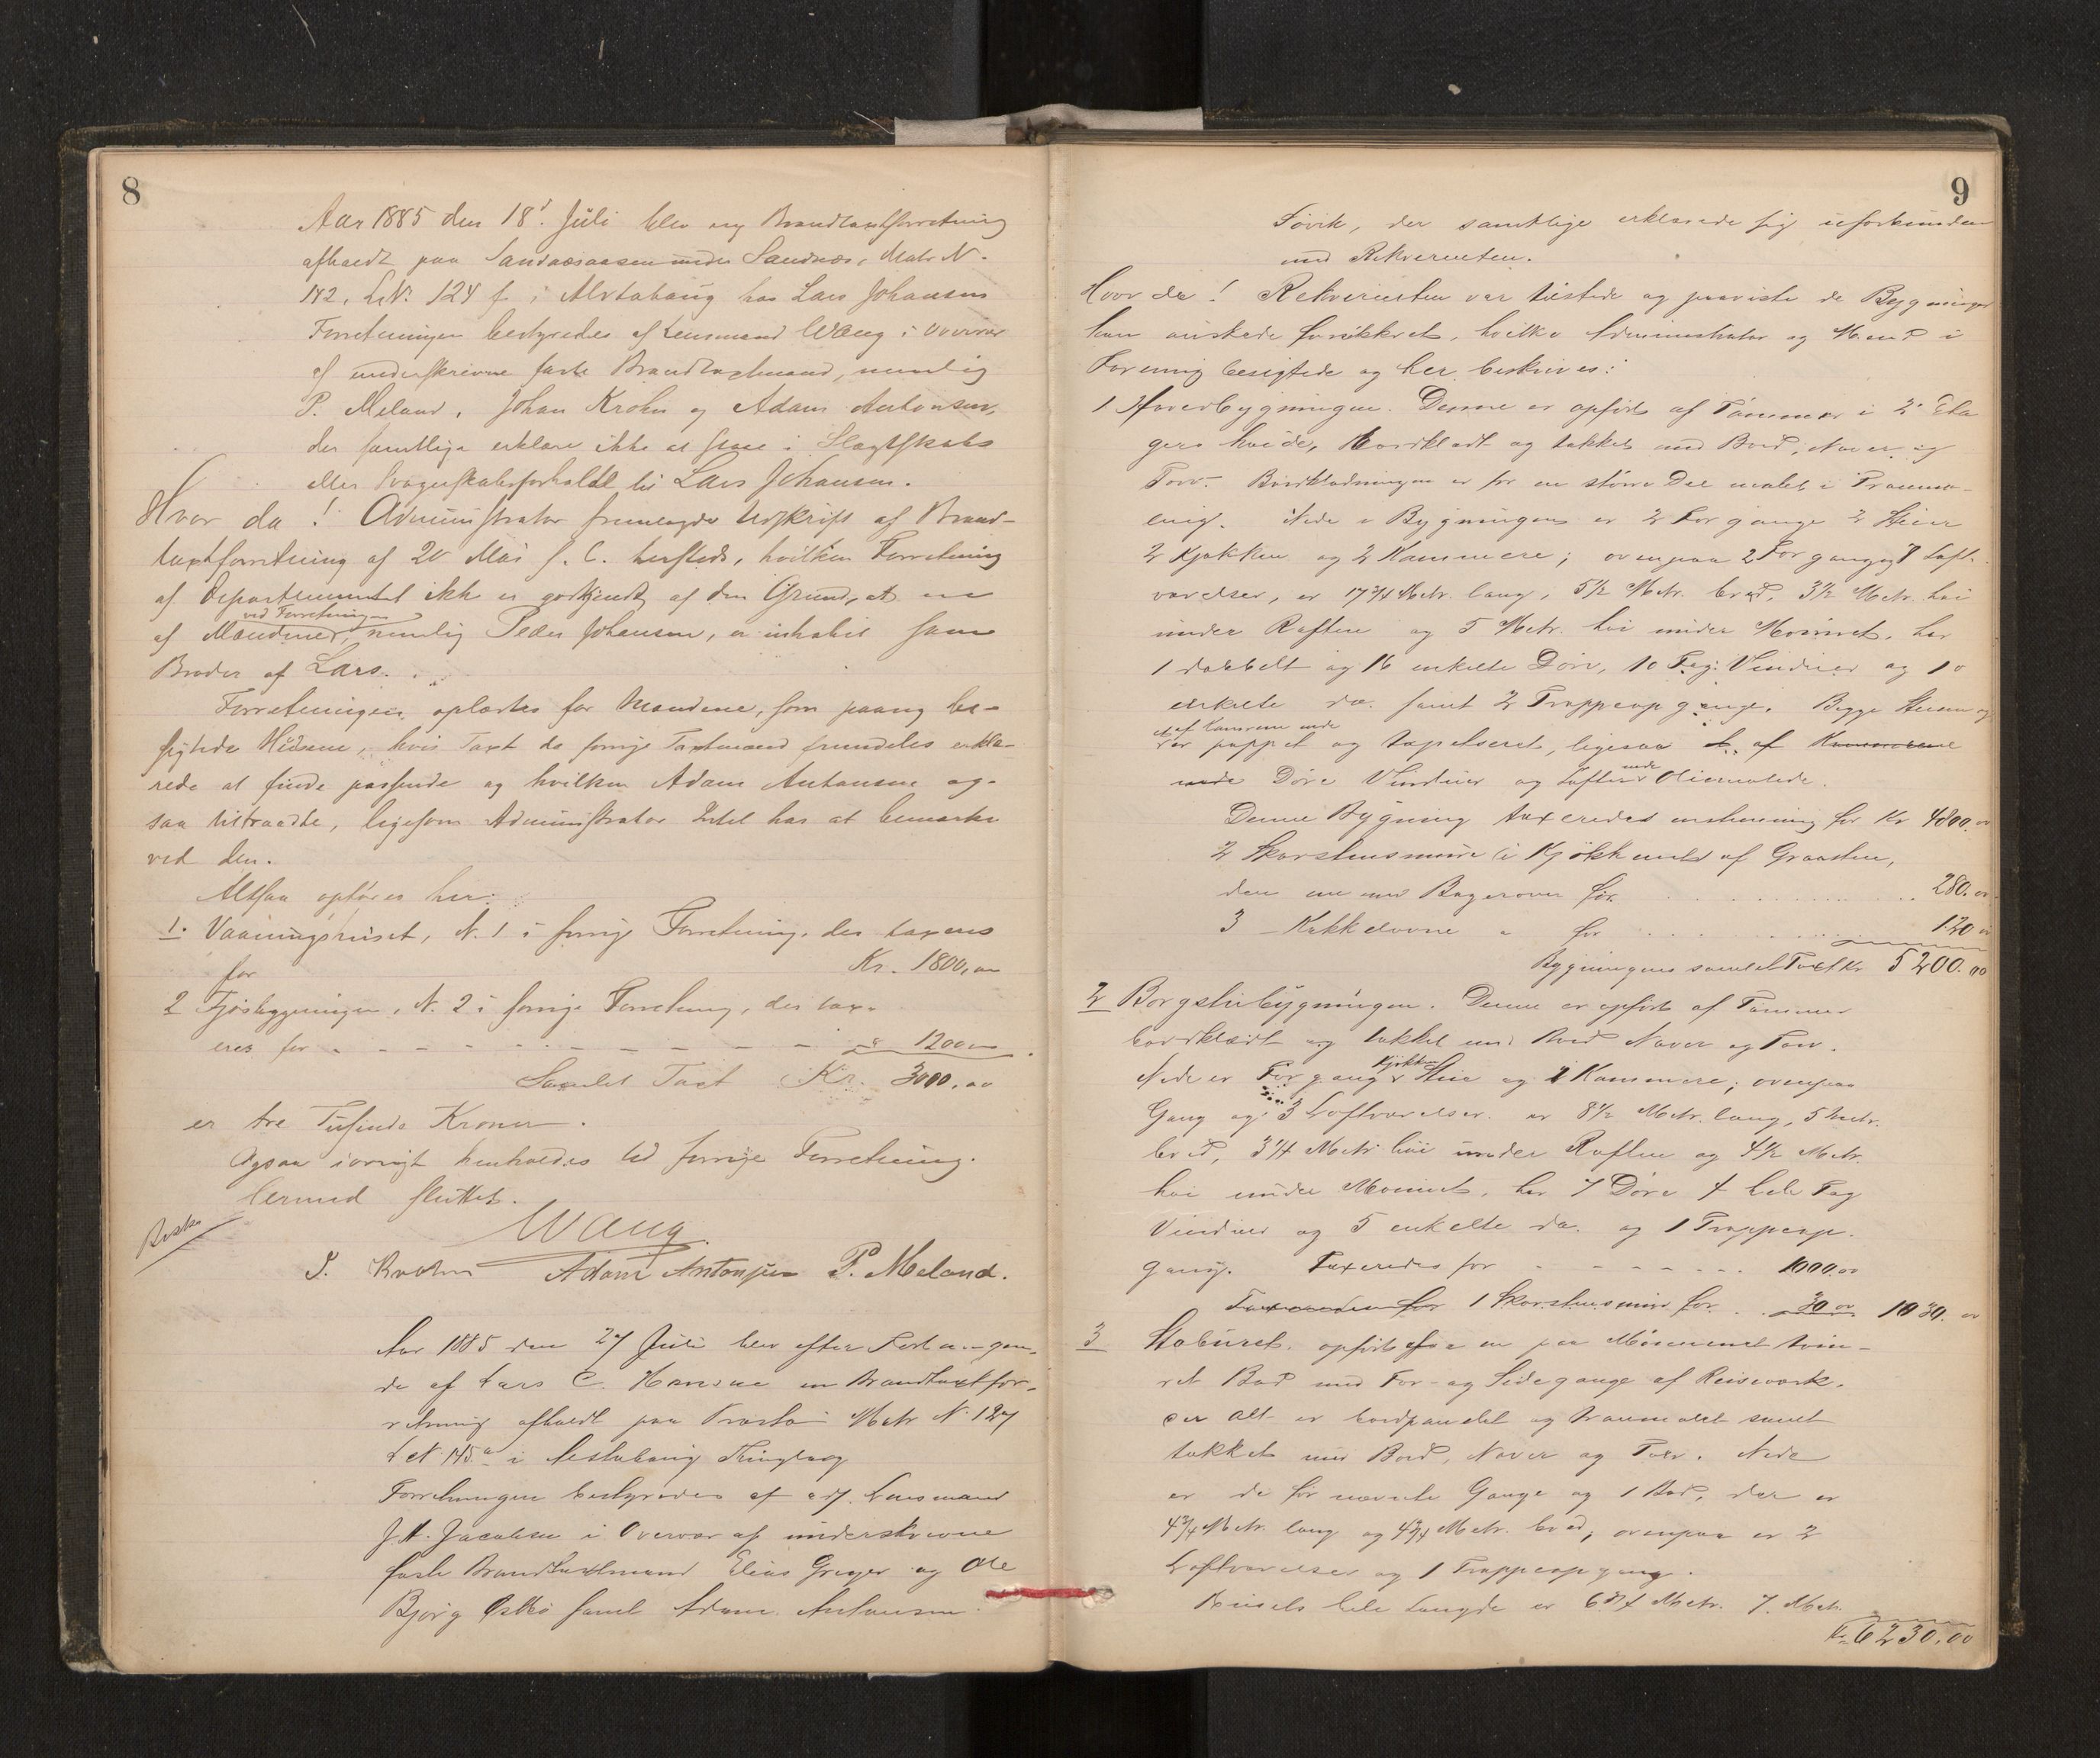 8
Aar 1885 den 18' Juli blev ny Brandtaxtforretning
afholdt paa Sandnæsaasen under Sandnæs, Matr N.
142, L.N. 124 f i Alstahaug hos Lars Johansen
Forretningen bestyredes af Lensmand Wang i Overvær
af underskrevne faste Brandtaxtmænd, nemlig
P. Meland, Johan Krohn og Adam Antonsen,
der samtlige erklære ikke at staa i Slægtskabs
eller Svogerskabsforhold til Lars Johansen.
Hvor da! Administrator fremlagde Udskrift af Brand-
taxtforretning af 20 Mai f. A. hersteds, hvilken Forretning
af Departementet ikke er godkjendt af den Grund, at en
ved Forretningen
af Mændene, nemlig Peder Johansen, er inhabil som
Broder af Lars.
Forretningen oplæstes for Mændene, som paany be-
sigtede Husene, hvis Taxt de forrige Taxtmænd fremdeles erklæ-
rede at finde passende og hvilken Adam Antonsen og-
saa tiltraadte, ligesom Administrator Intet har at bemærke
ved den.
Altsaa opføres her:
1. Vaaningshuset, N. 1 i forrige Forretning, der taxeres
for Kr. 1800,00
2 Fjøsbygningen, N. 2 i forrige Forretning, der tax-
eres for - - - - - - - - - 1200,00
Samlet Taxt Kr. 3000,00
er tre Tusinde Kroner.
Ogsaa iøvrigt henholdes til forrige Forretning.
Hermed sluttet.
Wang.
J. Krohn Adam Antonsen P. Meland.
Aar 1885 den 27 Juli blev efter Forlangen-
de af Lars C. Hansen en Brandtaxtfor-
retning afholdt paa Matr N. 127
L N. 145a i Alstahaug Thinglag
Forretningen bestyredes af Lensmand
J. H. Jacobsen i Overvær af underskrevne
faste Brandtaxtmænd Elias Greger og Ole
Bjørg Østbø samt Adam Antonsen
9
Søvik, der samtlige erklærede sig uforbunden
med Rekvirenten.
Hvor da! Rekvirenten var tilstede og paaviste de Bygninger
han ønskede forsikkret, hvilke Administrator og Mænd i
Forening besigtede og her beskrives:
1 Hovedbygningen. Denne er opført af Tømmer i 2 Eta
gers høide, bordklædt og tækket med Bord, Næver og
Torv. Bordklædningen er for en større Del malet i Tranma-
ling. Nede i Bygningen er 2 Forgange 2 Stuer
2 Kjøkken og 2 Kammere; ovenpaa 2 Forgange og 7 Loft-
værelser, er 17 3/4 Metr. lang, 5 1/2 Metr. bred, 3 1/2 Metr. høi
under Raften og 5 Metr. høi under Mønnet, har
1 dobbelt og 16 enkelte Døre, 10 Fag Vinduer og 10
enkelte do. samt 2 Trappeopgange. Begge Stuerne og
af Kamrene nede
er pappet og tapetseret, ligesaa af Kammerene
nede Døre Vinduer og Lofter nede Oliemalede.
Denne Bygning taxeredes enstemmig for Kr 4800.00
2 Skorstensmure i Kjøkkenet af Graasten,
den ene med Bagerovn for . . . 280.00
3 Kakkelovne " for . . . 120.00
Bygningens samlet Taxt Kr. 5200.00
2 Borgstubygningen. Denne er opført af Tømmer
bordklædt og tækket med Bord Næver og Torv.
Nede er Forgang Kjøkken Stue og 2 Kammere; ovenpaa
Gang og 3 Loftværelser. er 8 1/2 Metr. lang, 5 Metr.
bred, 3 1/4 Metr høi under Raften og 4 1/2 Metr.
høi under Mønnet, har 7 Døre 4 hele Fag
Vinduer og 5 enkelte do. og 1 Trappeop-
gang. Taxeredes for - - - - - 1000.00
Taxeredes for 1 Skorstensmur for . . 30.00 1030.00
3 Staburet, opført af en paa tøm-
ret Bod med For- og Sidegange af Reisværk.
alt er bordpanelet og tranmalet samt
tækket med Bord, Næver og Torv. Nede
er de før nævnte Gange og 1 Bod, der er
4 3/4 Metr. lang og 4 3/4 Metr. bred; ovenpaa er 2
Loftværelser og 1 Trappeopgang.
Husets hele Længde er 6 3/4 Metr. 7. Metr.
Kr. 6230.00